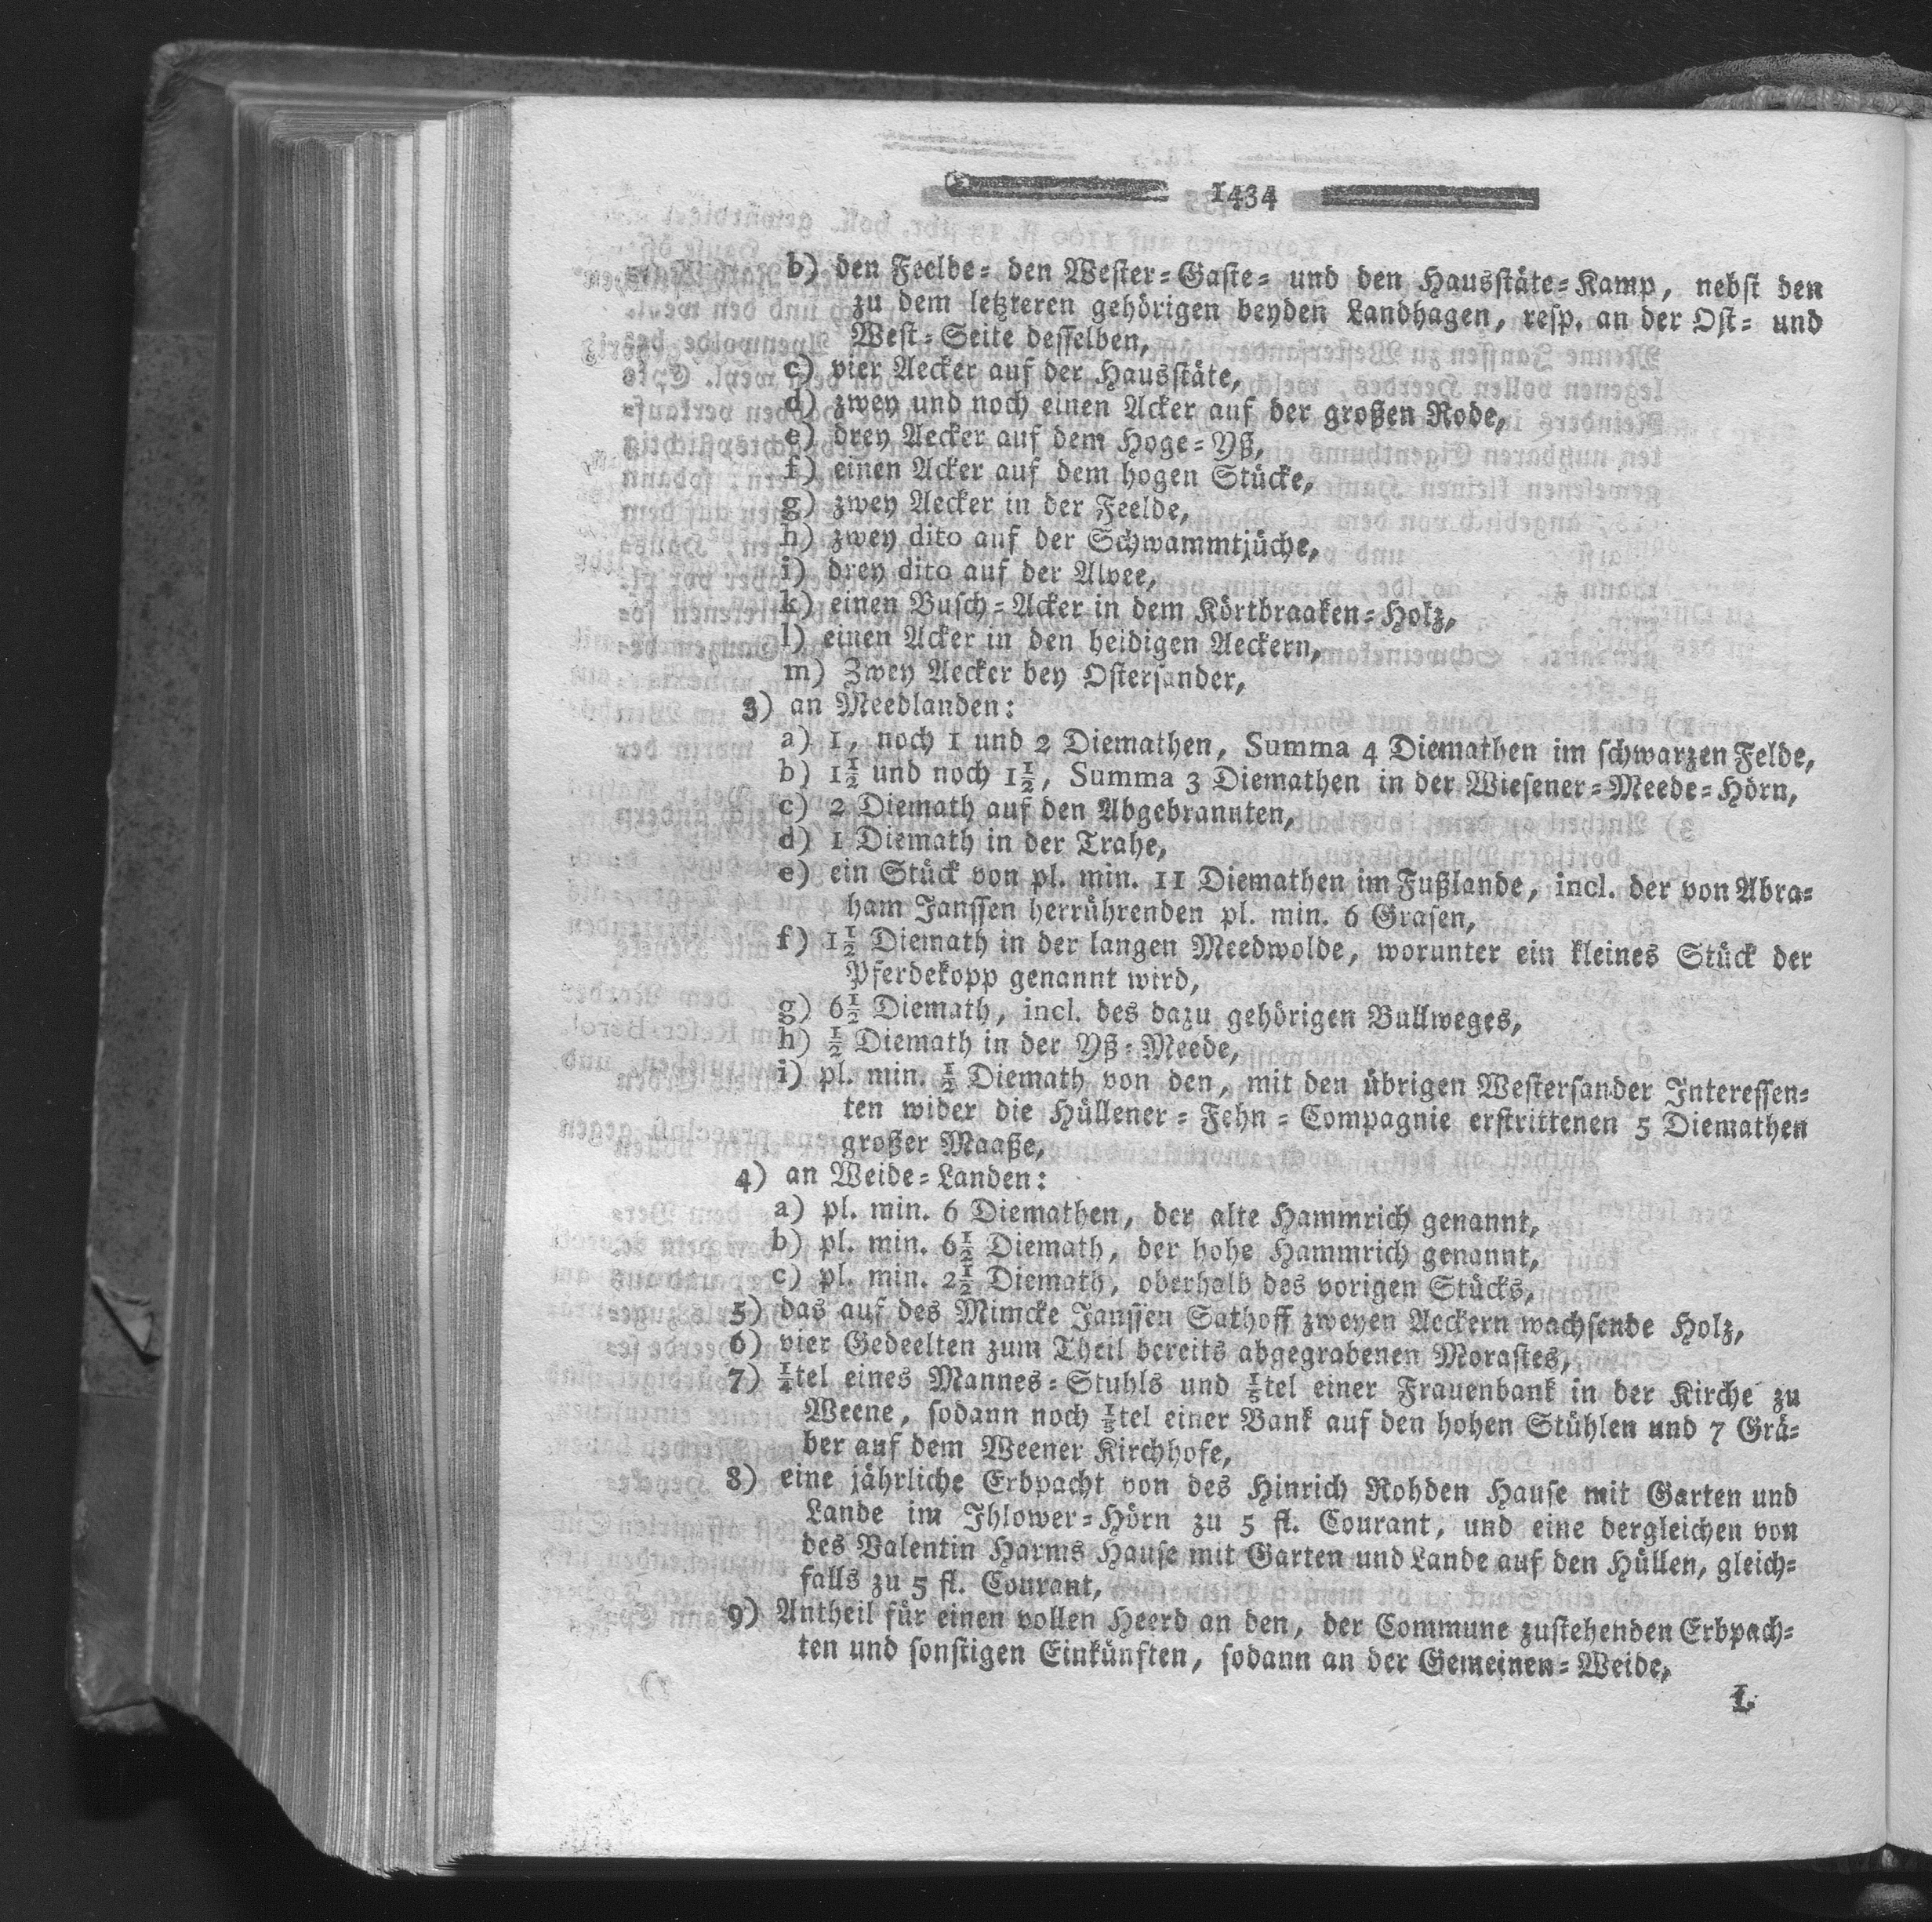 1434
b) den Feelde- den Wester-Gaste- und den Hausstäte-Kamp, nebst den
zu dem letzteren gehörigen beyden Landhagen, resp. an der Ost- und
West-Seite desselben,
c) vier Aecker auf der Hausstäte,
d) zwey und noch einen Acker auf der großen Rode,
e) drey Aecker auf dem Hoge-Yß,
f) einen Acker auf dem hogen Stücke,
g) zwey Aecker in der Feelde,
h) zwey dito auf der Schwammtjüche,
i) drey dito auf der Alvee,
k) einen Busch-Acker in dem Körtbraaken-Holz,
l) einen Acker in den heidigen Aeckern,
m) Zwey Aecker bey Ostersander,
3) an Meedlanden:
a) 1, noch 1 und 2 Diemathen, Summa 4 Diemathen im schwarzen Felde,
b) 1½ und noch 1½, Summa 3 Diemathen in der Wiesener-Meede-Hörn,
c) 2 Diemath auf den Abgebrannten,
d) 1 Diemath in der Trahe,
e) ein Stück von pl. min. 11 Diemathen im Fußlande, incl. der von Abra-
ham Janssen herrührenden pl. min. 6 Grasen,
f) 1½ Diemath in der langen Meedwolde, worunter ein kleines Stück der
Pferdekopp genannt wird,
g) 6½ Diemath, incl. des dazu gehörigen Bullweges,
h) ½ Diemath in der Yß-Meede,
i) pl. min. ½ Diemath von den, mit den übrigen Westersander Interessen-
ten wider die Hüllener-Fehn-Compagnie erstrittenen 5 Diemathen
großer Maaße,
4) an Weide-Landen:
a) pl. min. 6 Diemathen, der alte Hammrich genannt,
b) pl. min. 6½ Diemath, der hohe Hammrich genannt,
c) pl. min. 2½ Diemath, oberhalb des vorigen Stücks,
5) das auf des Mimcke Janssen Sathoff zweyen Aeckern wachsende Holz,
6) vier Gedeelten zum Theil bereits abgegrabenen Morastes,
7) ¼tel eines Mannes-Stuhls und ⅕tel einer Frauenbank in der Kirche zu
Weene, sodann noch ⅕tel einer Bank auf den hohen Stühlen und 7 Grä-
ber auf dem Weener Kirchhofe,
8) eine jährliche Erbpacht von des Hinrich Rohden Hause mit Garten und
Lande im Ihlower-Hörn zu 5 fl. Courant, und eine dergleichen von
des Valentin Harms Hause mit Garten und Lande auf den Hüllen, gleich-
falls zu 5 fl. Courant,
9) Antheil für einen vollen Heerd an den, der Commune zustehenden Erbpach-
ten und sonstigen Einkünften, sodann an der Gemeinen-Weide,
I.